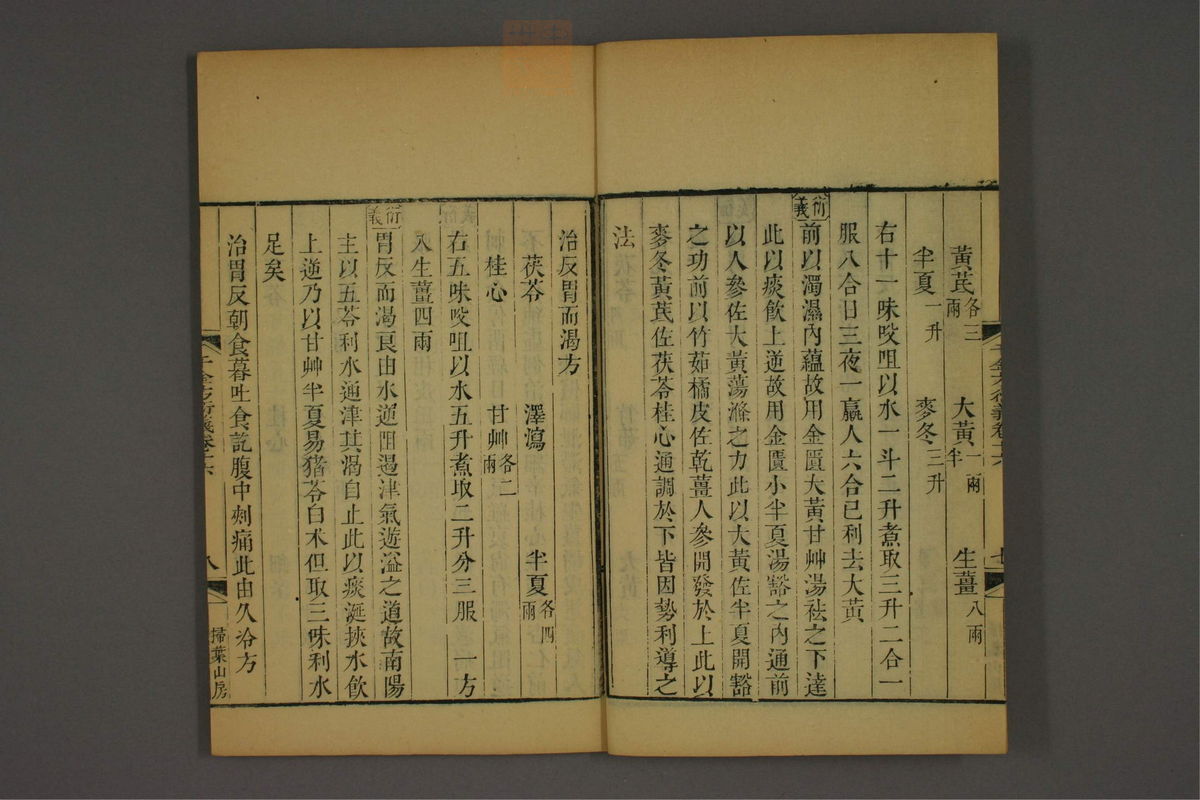 黃芪各三兩　大黃一兩半　生薑八兩
半夏一升　麥冬三升
右十一味㕮咀以水一斗二升煮取三升二合一
服八合日三夜一羸人六合已利去大黃
衍義前以濁濕內蘊故用金匱大黃甘艸湯祛之下達
此以痰飲上逆故用金匱小半夏湯豁之內通前
以人參佐大黃蕩滌之力此以大黃佐半夏開豁
之功前以竹茹橘皮佐乾薑人參開發於上此以
麥冬黃芪佐茯苓桂心通調於下皆因勢利導之
法
千金方衍義卷十六　七
治反胃而渴方
茯苓　澤瀉　半夏各四兩
桂心　甘艸各二兩
右五味㕮咀以水五升煮取二升分三服　一方
入生薑四兩
衍義胃反而渴良由水逆阻遏津氣遊溢之道故南陽
主以五苓利水通津其渴自止此以痰涎挾水飲
上逆乃以甘艸半夏易豬苓白朮但取三味利水
足矣
治胃反朝食暮吐食訖腹中刺痛此由久冷方
千金方衍義卷十六　八　掃葉山房